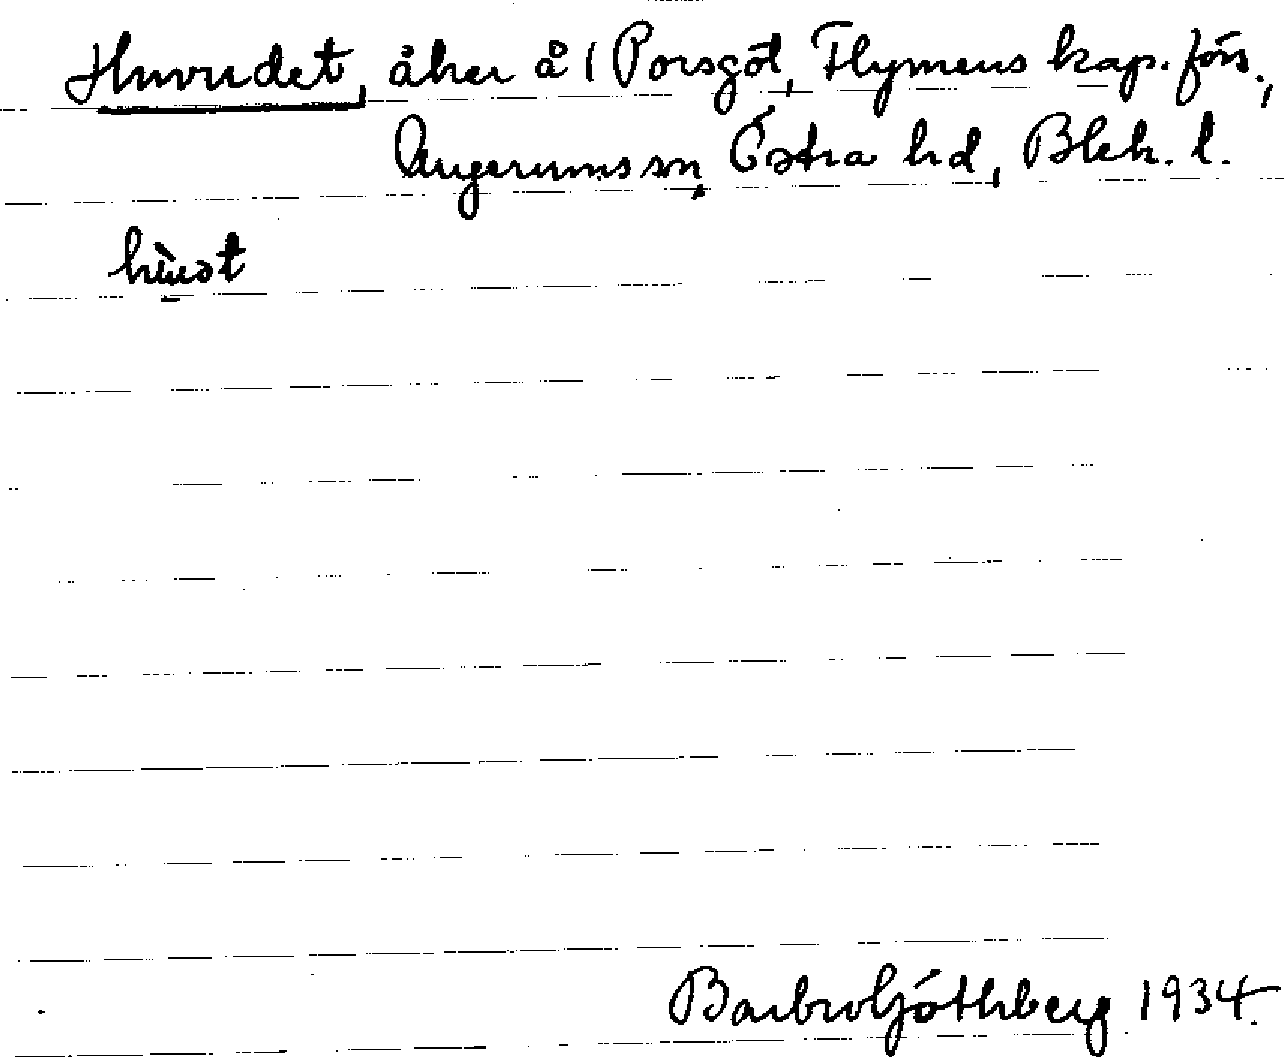 Huvudet, åker å 1 Porsgöl, Flymens kap. förs.,
Augerums sn, Östra hd, Blek. l.
hù̱ət
Barbro Göthberg 1934.